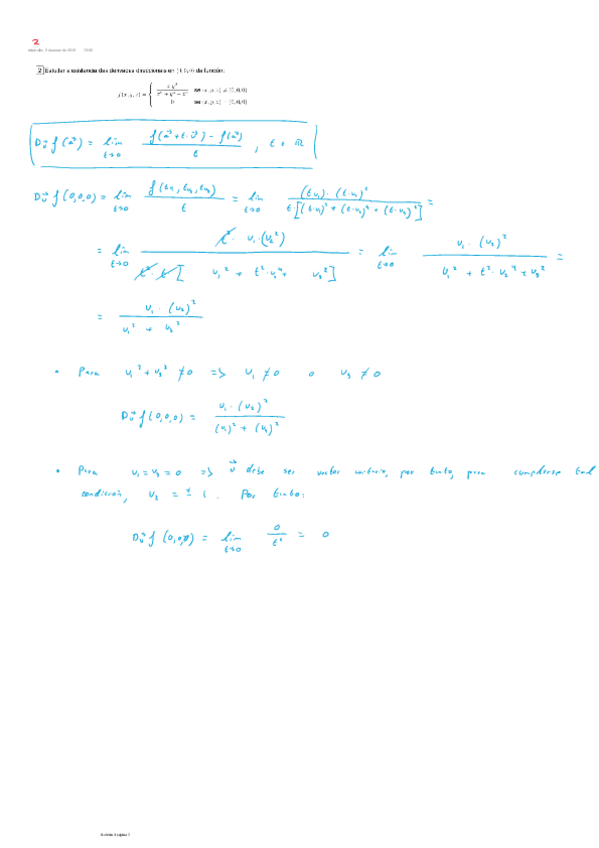 2
2 Estudiar a existencia das derivadas direccionais en (0,0,0) da función:
f(x, y, z) = { x y² / x² + y⁴ + z² se (x, y, z) ≠ (0,0,0)
0 se (x, y, z) = (0,0,0)
D_u⃗ f(a⃗) = lim t→0 f(a⃗ + t·u⃗) − f(a⃗) / t , t ∈ ℝ
D_u⃗ f(0,0,0) = lim t→0 f(tu₁, tu₂, tu₃) / t = lim t→0 (tu₁)·(t·u₂)² / t[(t·u₁)² + (t·u₂)⁴ + (t·u₃)²] =
= lim t→0 t³· u₁·(u₂²) / t²·t [ u₁² + t²·u₂⁴ + u₃² ] = lim t→0 u₁·(u₂)² / u₁² + t²·u₂⁴ + u₃² =
= u₁·(u₂)² / u₁² + u₃²
• Para u₁² + u₃² ≠ 0 => u₁ ≠ 0 o u₃ ≠ 0
D_u⃗ f(0,0,0) = u₁·(u₂)² / (u₁)² + (u₃)²
• Para u₁ = u₃ = 0 => u⃗ debe ser vector unitario, por tanto, para cumplirse tal
condición, u₂ = ± 1 . Por tanto:
D_u⃗ f(0,0,0) = lim t→0 0 / t⁵ = 0